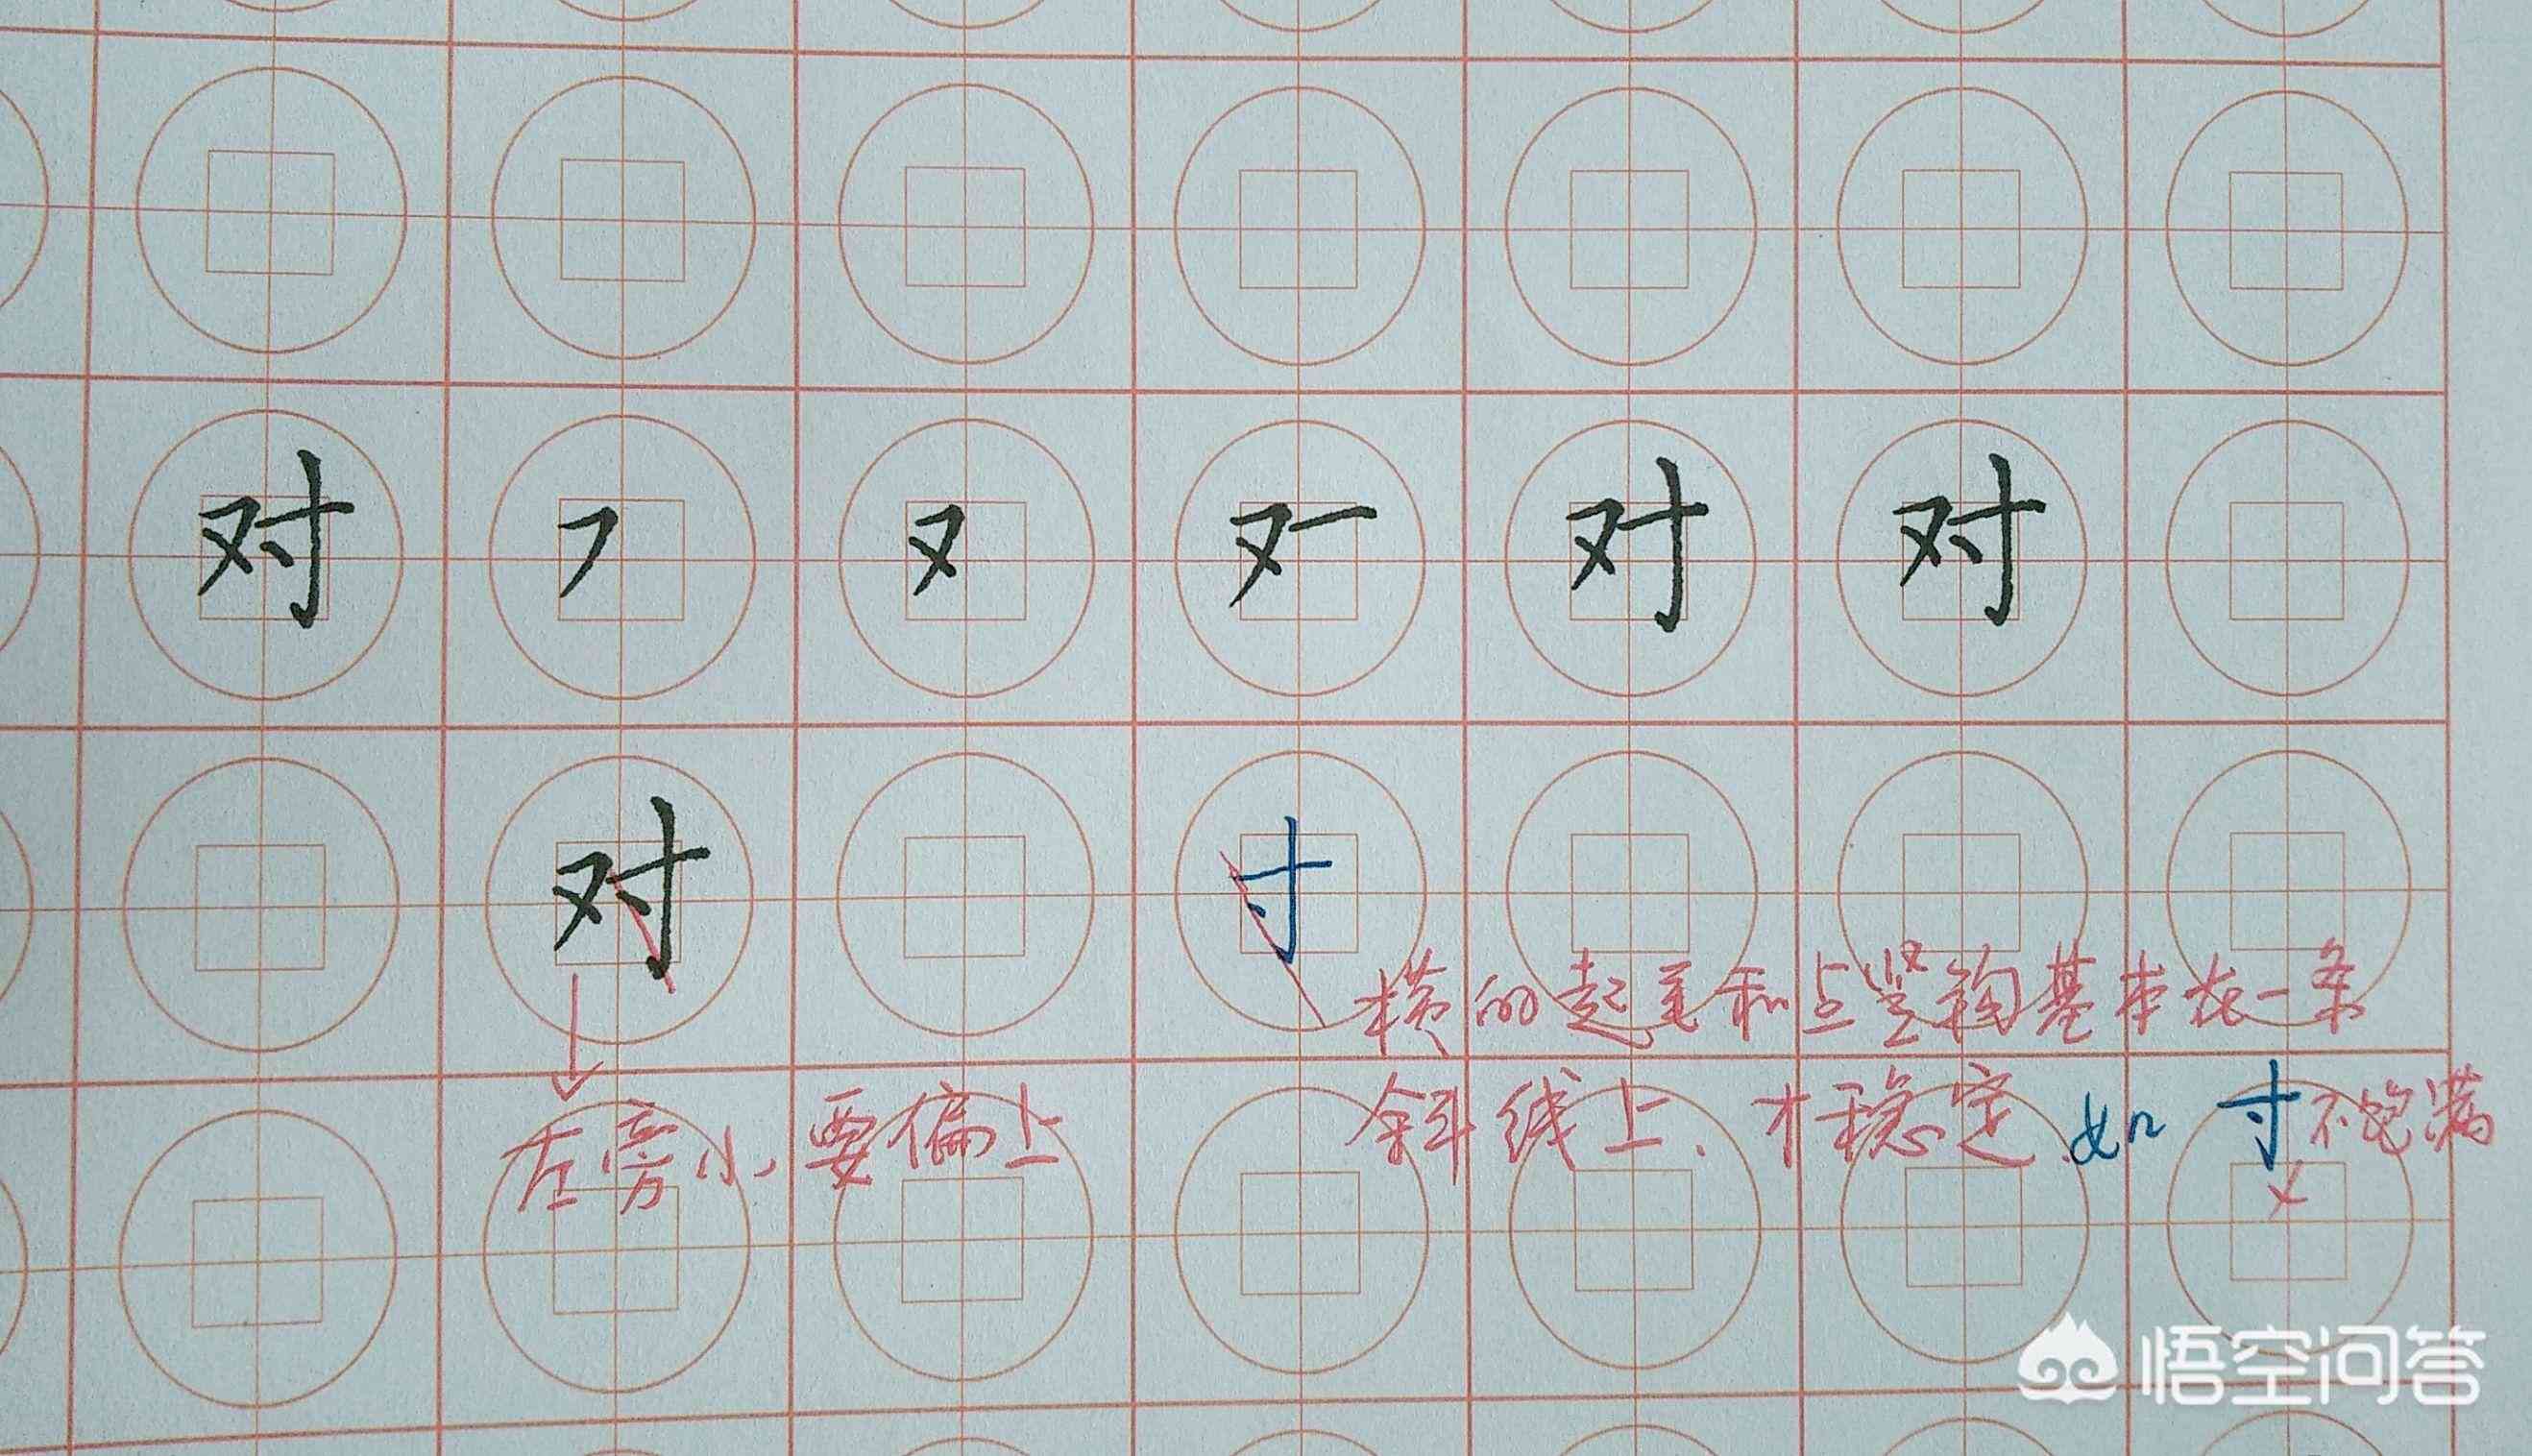 对 フ 又 又一 对 对
对 寸
横的起笔和点竖钩基本在一条
斜线上、才稳定 如 寸 不饱满
左旁小要偏上
×
悟空问答